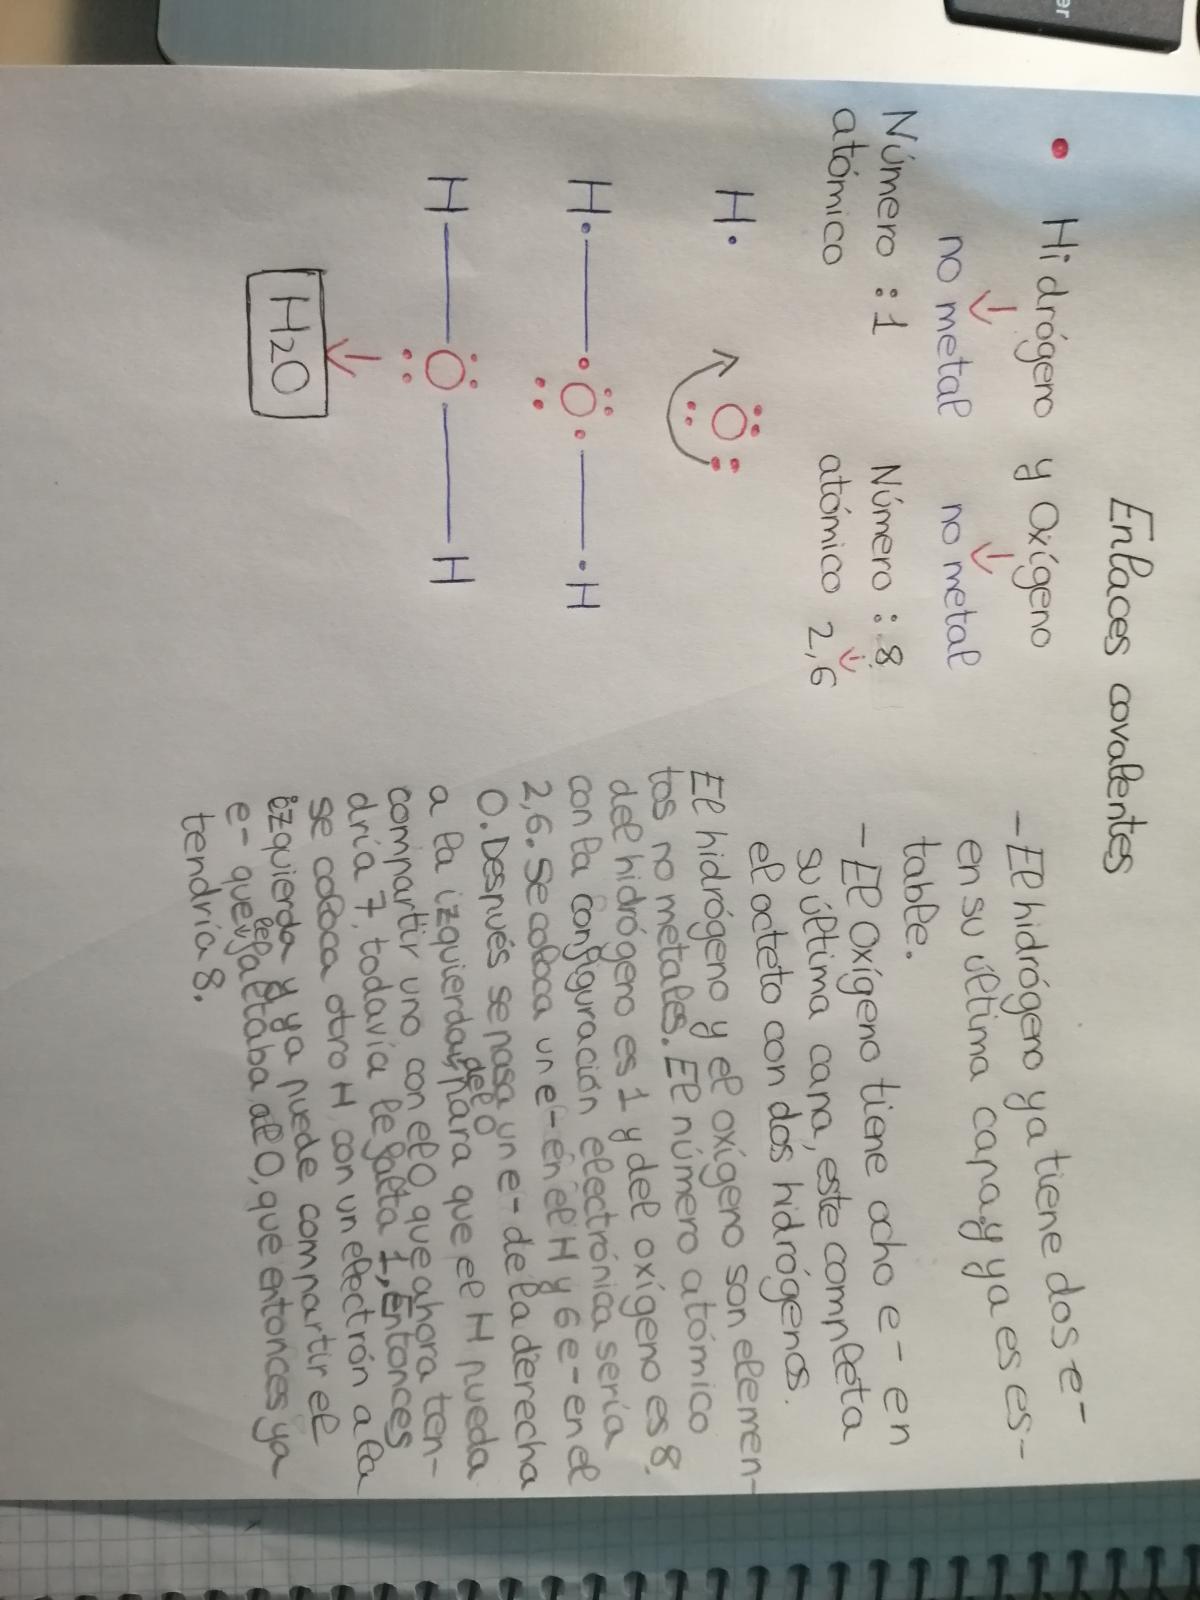 Enlaces covalentes
• Hidrógeno y Oxígeno
no metal no metal
Número : 1
atómico
Número : 8
atómico 2,6
H· O
H· · O · · H
H — O — H
H2O
- El hidrógeno ya tiene dos e-
en su última capa, y ya es es-
table.
- El Oxígeno tiene ocho e- en
su última capa, este completa
el octeto con dos hidrógenos.
El hidrógeno y el oxígeno son elemen-
tos no metales. El número atómico
del hidrógeno es 1 y del oxígeno es 8.
con la configuración electrónica sería
2,6. Se coloca un e- en el H y 6 e- en el
O. Después se pasa un e- de la derecha
a la izquierda del O para que el H pueda
compartir uno con el O que ahora ten-
dría 7, todavía le falta 1, Entonces
se coloca otro H con un electrón a la
izquierda y ya puede compartir el
e- que le faltaba al O, que entonces ya
tendría 8.
er